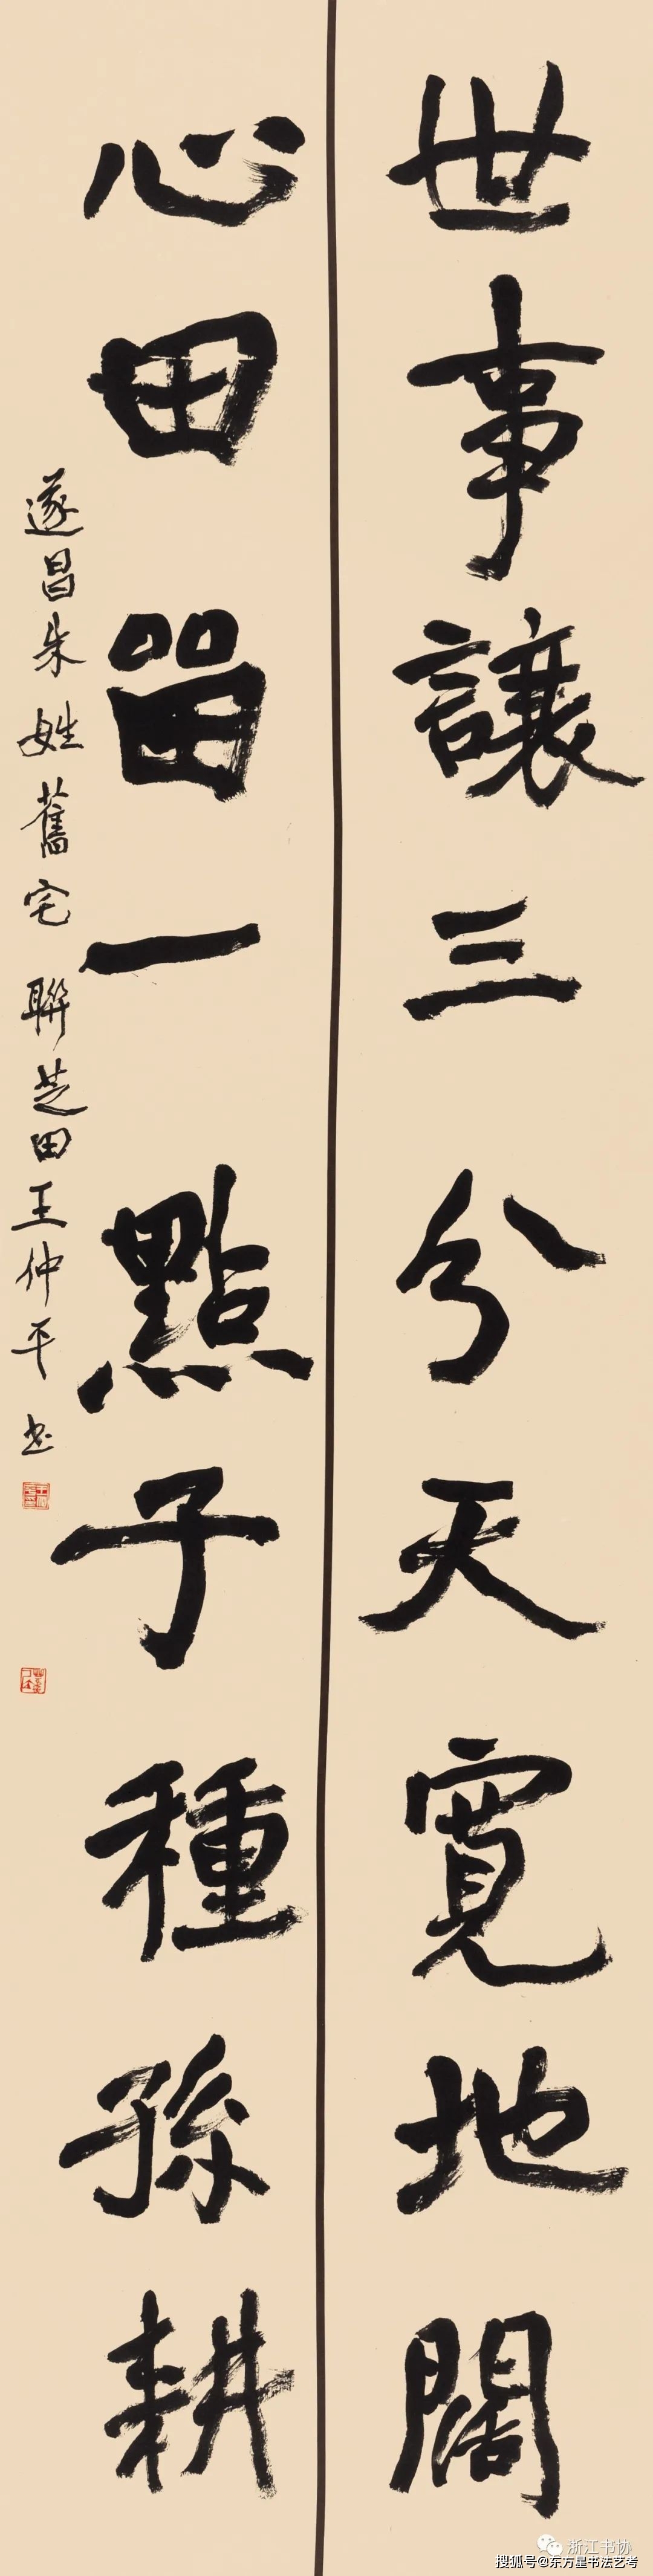 世事讓三分天寬地闊
心田留一點子種孫耕
遂昌朱姓舊宅聯芝田王仲平书
浙江书协
搜狐号@东方星书法艺考